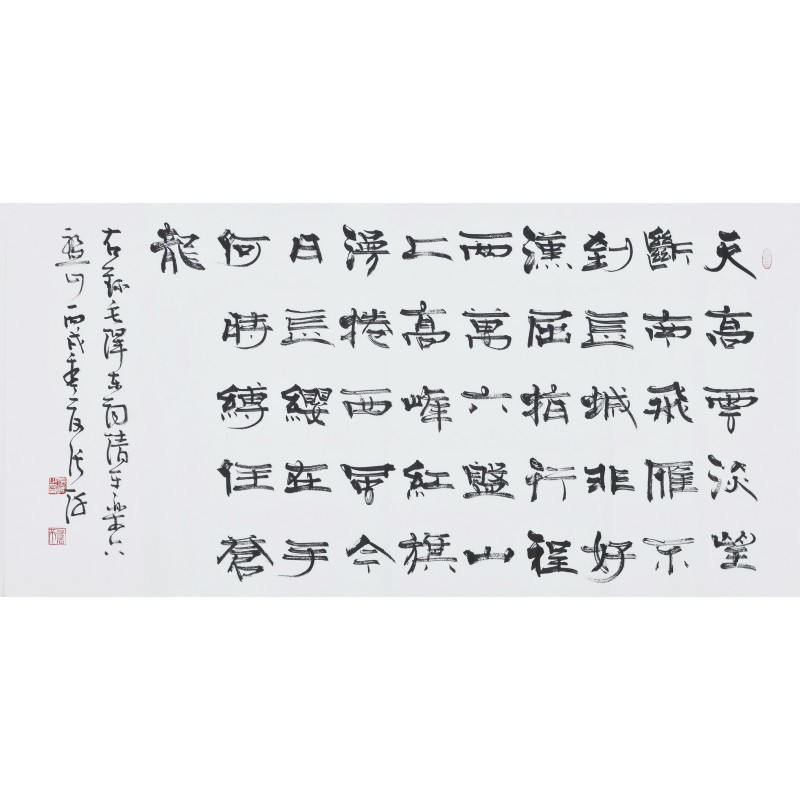 天高雲淡望
斷南飛雁不
到長城非好
漢屈指行程
两萬六盤山
上高峰紅旗
漫捲西風今
日長纓在手
何時縛住蒼
龍
右錄毛澤東詞清平樂六
盤山丙戌季夏